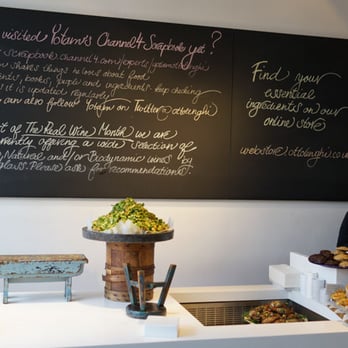 visited Yotam's Channel 4 Scrapbook yet?
scrapbook.channel4.com/
shares things he loves about food
books, and ingredients. Keep checking
it is updated regularly
can also follow Yotam on Twitter @ottolenghi
of The Real Wine Month we are
offering a wide selection of
Natural and/or Biodynamic wines by
glass. Please ask for recommendations.
Find your
essential
ingredients on our
online store
webstore.ottolenghi.co